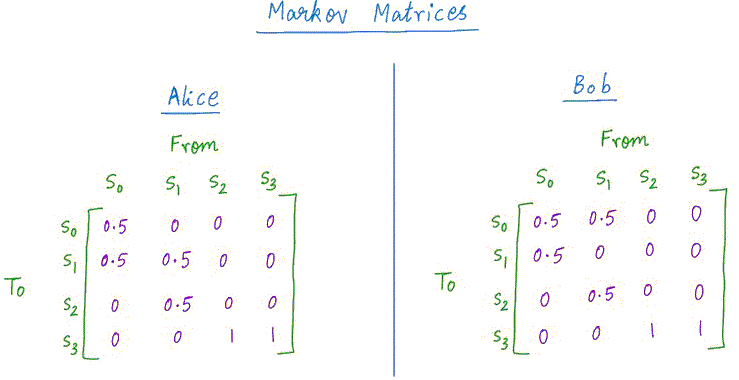 Markov Matrices
Alice
From
S0 S1 S2 S3
S0 0.5 0 0 0
S1 0.5 0.5 0 0
To
S2 0 0.5 0 0
S3 0 0 1 1
Bob
From
S0 S1 S2 S3
S0 0.5 0.5 0 0
S1 0.5 0 0 0
To
S2 0 0.5 0 0
S3 0 0 1 1